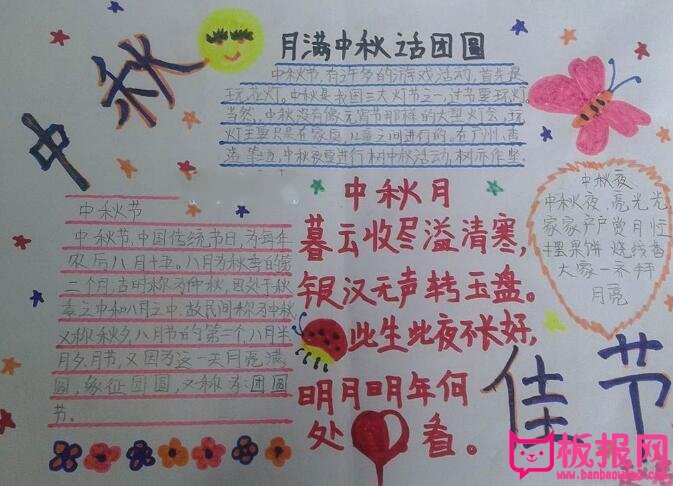 中秋
月满中秋话团圆
中秋节,有许多的游戏活动,首先是
玩花灯。中秋是我国三大灯节之一,过节要玩灯。
当然,中秋没有像元宵节那样的大型灯会,玩
灯主要只是在家庭,儿童之间进行的。在广州、南
等,中秋夜要进行树中秋活动,树亦作竖
中秋夜
中秋夜,亮光光
家家户户赏月忙
摆果饼 烧线香
大家一齐拜
月亮
中秋节
中秋节,中国传统节日,为每年
农历八月十五。八月为秋季的第
二个月,古时称为仲秋,因处于秋
季之中和八月之中,故民间称为中秋
又称秋夕,八月节的第三个,八月半
月夕,月节,又因为这一天月亮满
圆,象征团圆,又称为:团圆
节。
中秋月
暮云收尽溢清寒,
银汉无声转玉盘。
此生此夜不长好,
明月明年何
处看。
佳节
板报网
www.banbaowang.com